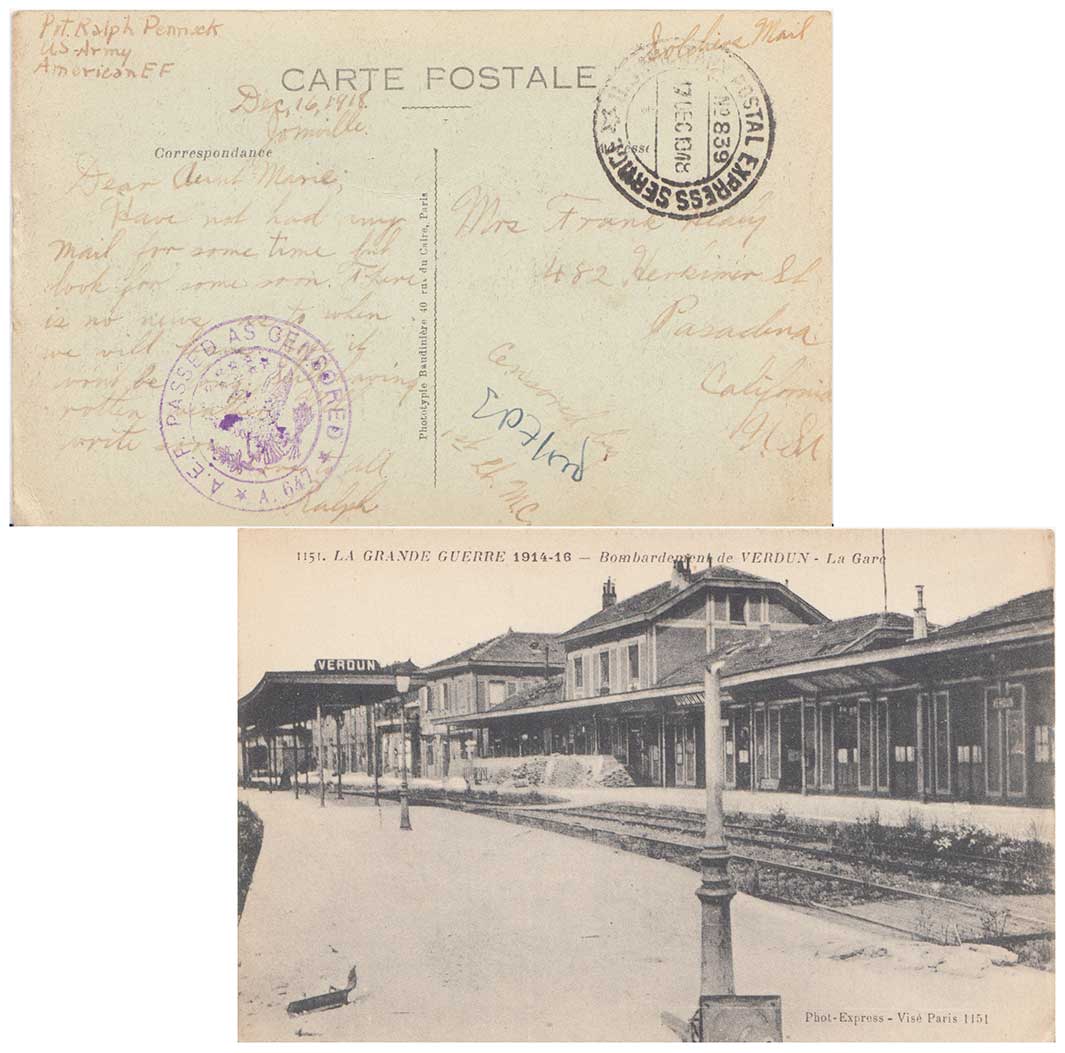 Pvt. Ralph Pennick
US-Army
American EF
Soldiers Mail
CARTE POSTALE
Dec, 16, 1918.
Joinville.
Correspondance
Adresse
POSTAL EXPRESS SERVICE
No 839
Dear Aunt Marie,
Have not had any
mail for some time but
look for some soon. There
is no news as to when
we will
wont be
rotten
write
all
Ralph
A.E.F. PASSED AS CENSORED
A. 641
Phototypie Baudinière 40 rue du Caire, Paris
Mrs Frank
482 Herkimer St
Pasadena
California
Censored by
1st Lt. M.C.
1151. LA GRANDE GUERRE 1914-16 — Bombardement de VERDUN - La Gare
VERDUN
Phot-Express - Visé Paris 1151